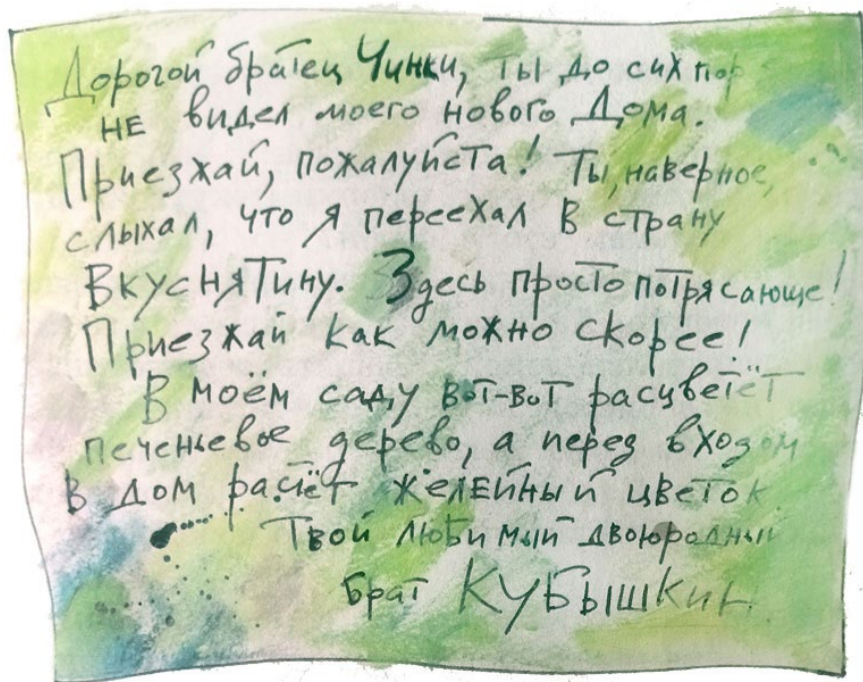 Дорогой братец Чинки, ты до сих пор
не видел моего нового Дома.
Приезжай, пожалуйста! Ты, наверное,
слыхал, что я переехал в страну
Вкуснятину. Здесь просто потрясающе!
Приезжай как можно скорее!
В моём саду вот-вот расцветёт
печеньевое дерево, а перед входом
в дом растёт желейный цветок.
Твой любимый двоюродный
брат Кубышкин